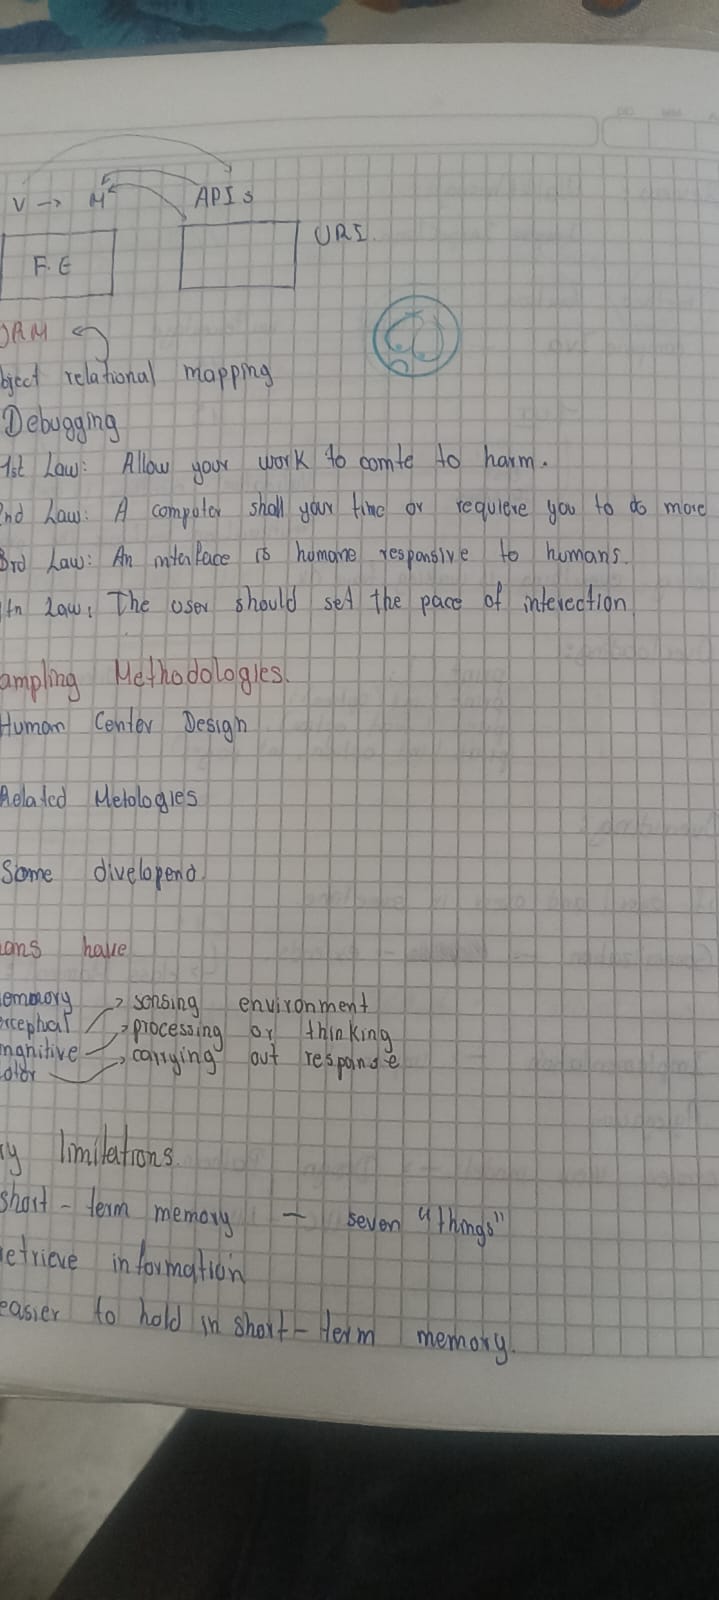 V → M APIs
F.E URI.
ORM
bject relational mapping
Debugging
1st Law: Allow your work to comte to harm.
2nd Law: A computer shall your time or requiere you to do more
3rd Law: An interface is humane responsive to humans.
Law: The user should set the pace of
ampling Methodologies.
Human Center Design
Related Metologies
Some divelopend
ans have
emory → sensing environment
rcephual → processing or thinking
→ carrying out response
otor
ry limitations.
short-term memory — seven "things"
etrieve information
easier to hold in short-term memory.